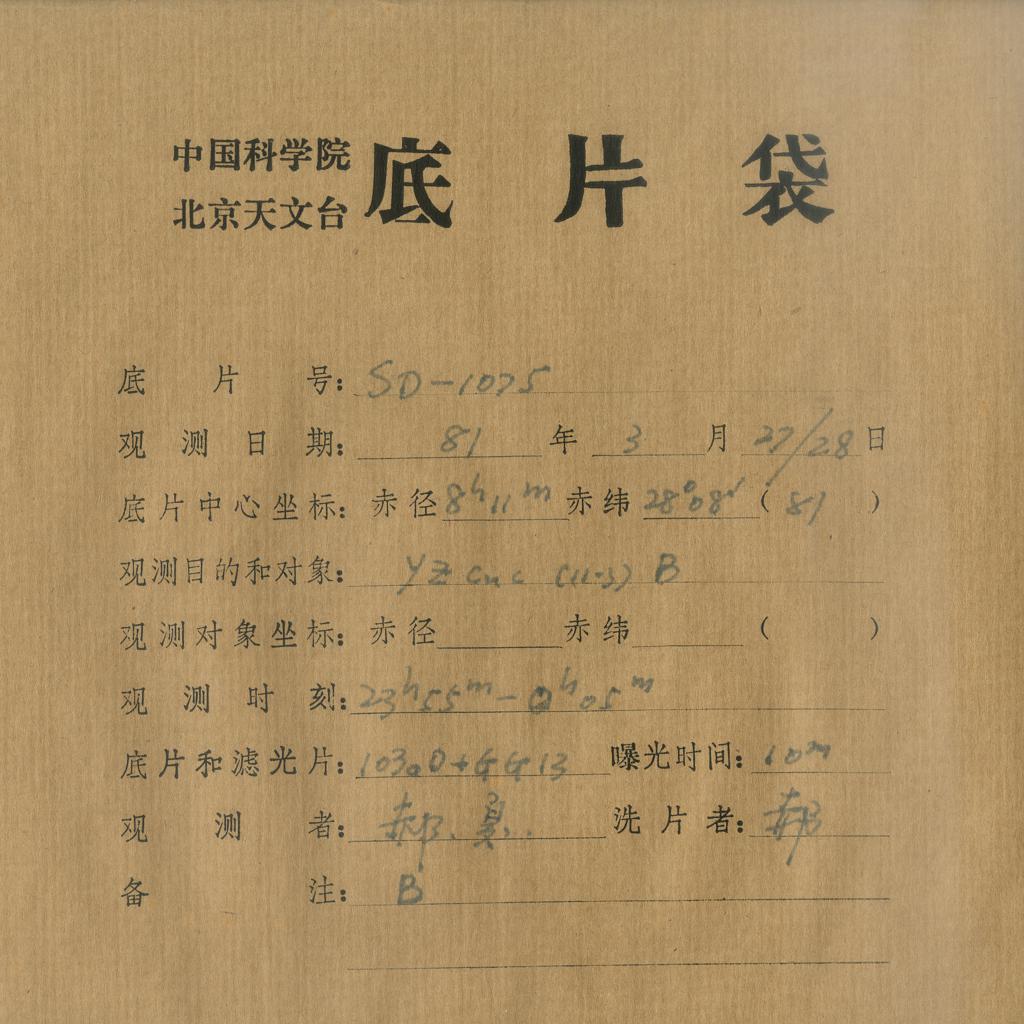 中国科学院
北京天文台 底片袋
底片号：SD-1075
观测日期：81年3月27/28日
底片中心坐标：赤径8h11m赤纬28°08′（81）
观测目的和对象：YZ Cnc (11-3) B
观测对象坐标：赤径 赤纬 （ ）
观测时刻：23h55m-0h05m
底片和滤光片：103aO+GG13 曝光时间：10m
观测者：郝. 洗片者：郝
备注：B